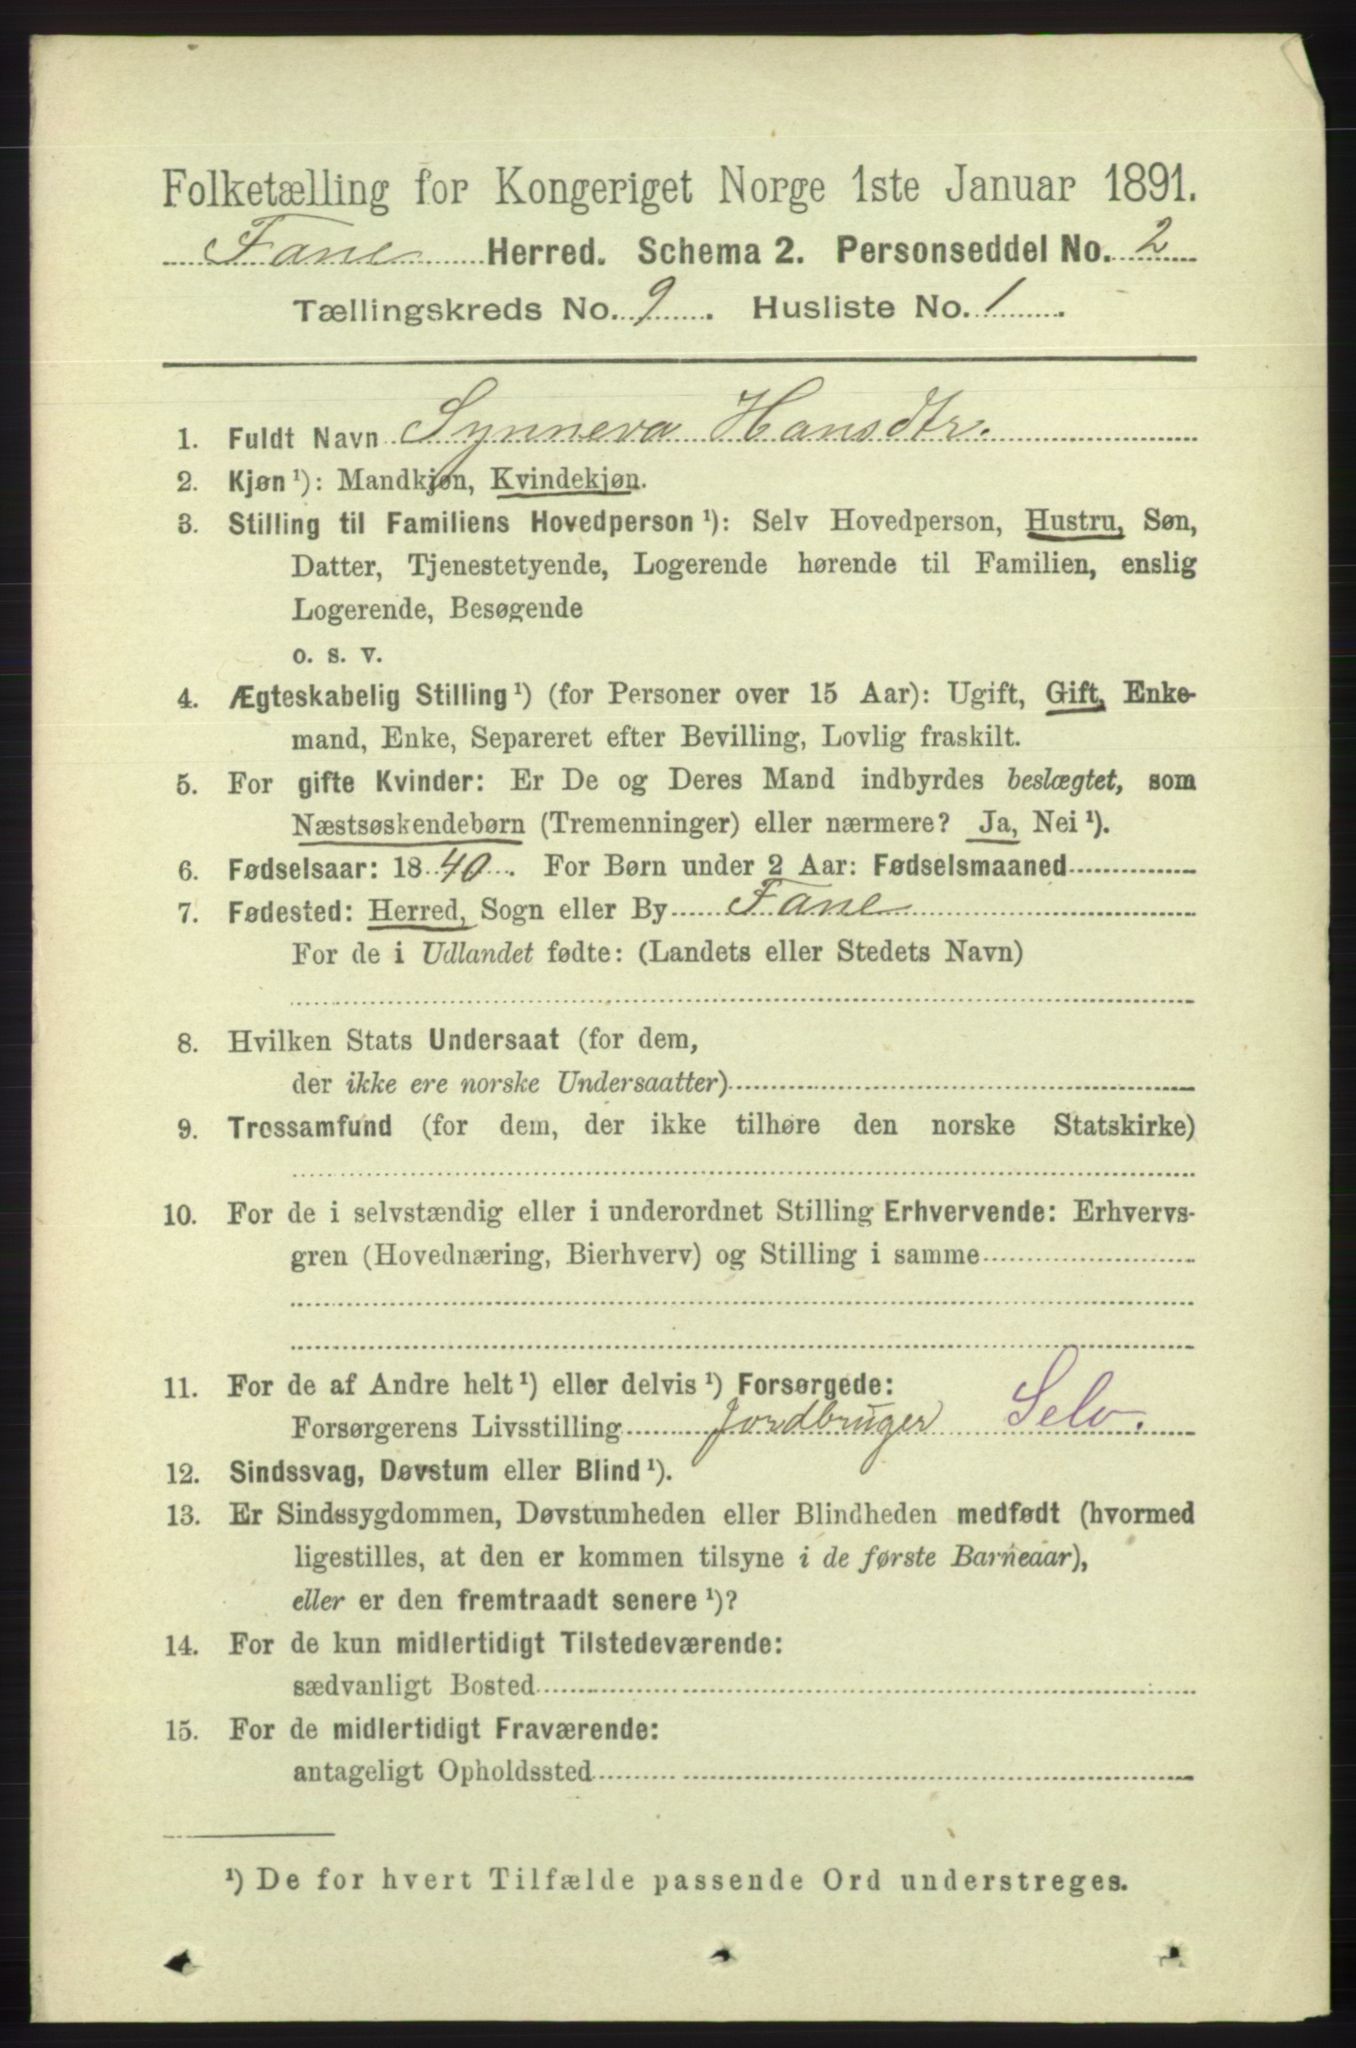 Folketælling for Kongeriget Norge 1ste Januar 1891.
Fane Herred. Schema 2. Personseddel No. 2
Tællingskreds No. 9. Husliste No. 1.
1. Fuldt Navn Synneva Hansdtr.
2. Kjøn ¹): Mandkjøn, Kvindekjøn.
3. Stilling til Familiens Hovedperson ¹): Selv Hovedperson, Hustru, Søn,
Datter, Tjenestetyende, Logerende hørende til Familien, enslig
Logerende, Besøgende
o. s. v.
4. Ægteskabelig Stilling ¹) (for Personer over 15 Aar): Ugift, Gift, Enke-
mand, Enke, Separeret efter Bevilling, Lovlig fraskilt.
5. For gifte Kvinder: Er De og Deres Mand indbyrdes beslægtet, som
Næstsøskendebørn (Tremenninger) eller nærmere? Ja, Nei ¹).
6. Fødselsaar: 1840. For Børn under 2 Aar: Fødselsmaaned
7. Fødested: Herred, Sogn eller By Fane
For de i Udlandet fødte: (Landets eller Stedets Navn)
8. Hvilken Stats Undersaat (for dem,
der ikke ere norske Undersaatter)
9. Trossamfund (for dem, der ikke tilhøre den norske Statskirke)
10. For de i selvstændig eller i underordnet Stilling Erhvervende: Erhvervs-
gren (Hovednæring, Bierhverv) og Stilling i samme
11. For de af Andre helt ¹) eller delvis ¹) Forsørgede:
Forsørgerens Livsstilling Jordbruger Selv.
12. Sindssvag, Døvstum eller Blind ¹).
13. Er Sindssygdommen, Døvstumheden eller Blindheden medfødt (hvormed
ligestilles, at den er kommen tilsyne i de første Barneaar),
eller er den fremtraadt senere ¹)?
14. For de kun midlertidigt Tilstedeværende:
sædvanligt Bosted
15. For de midlertidigt Fraværende:
antageligt Opholdssted
¹) De for hvert Tilfælde passende Ord understreges.